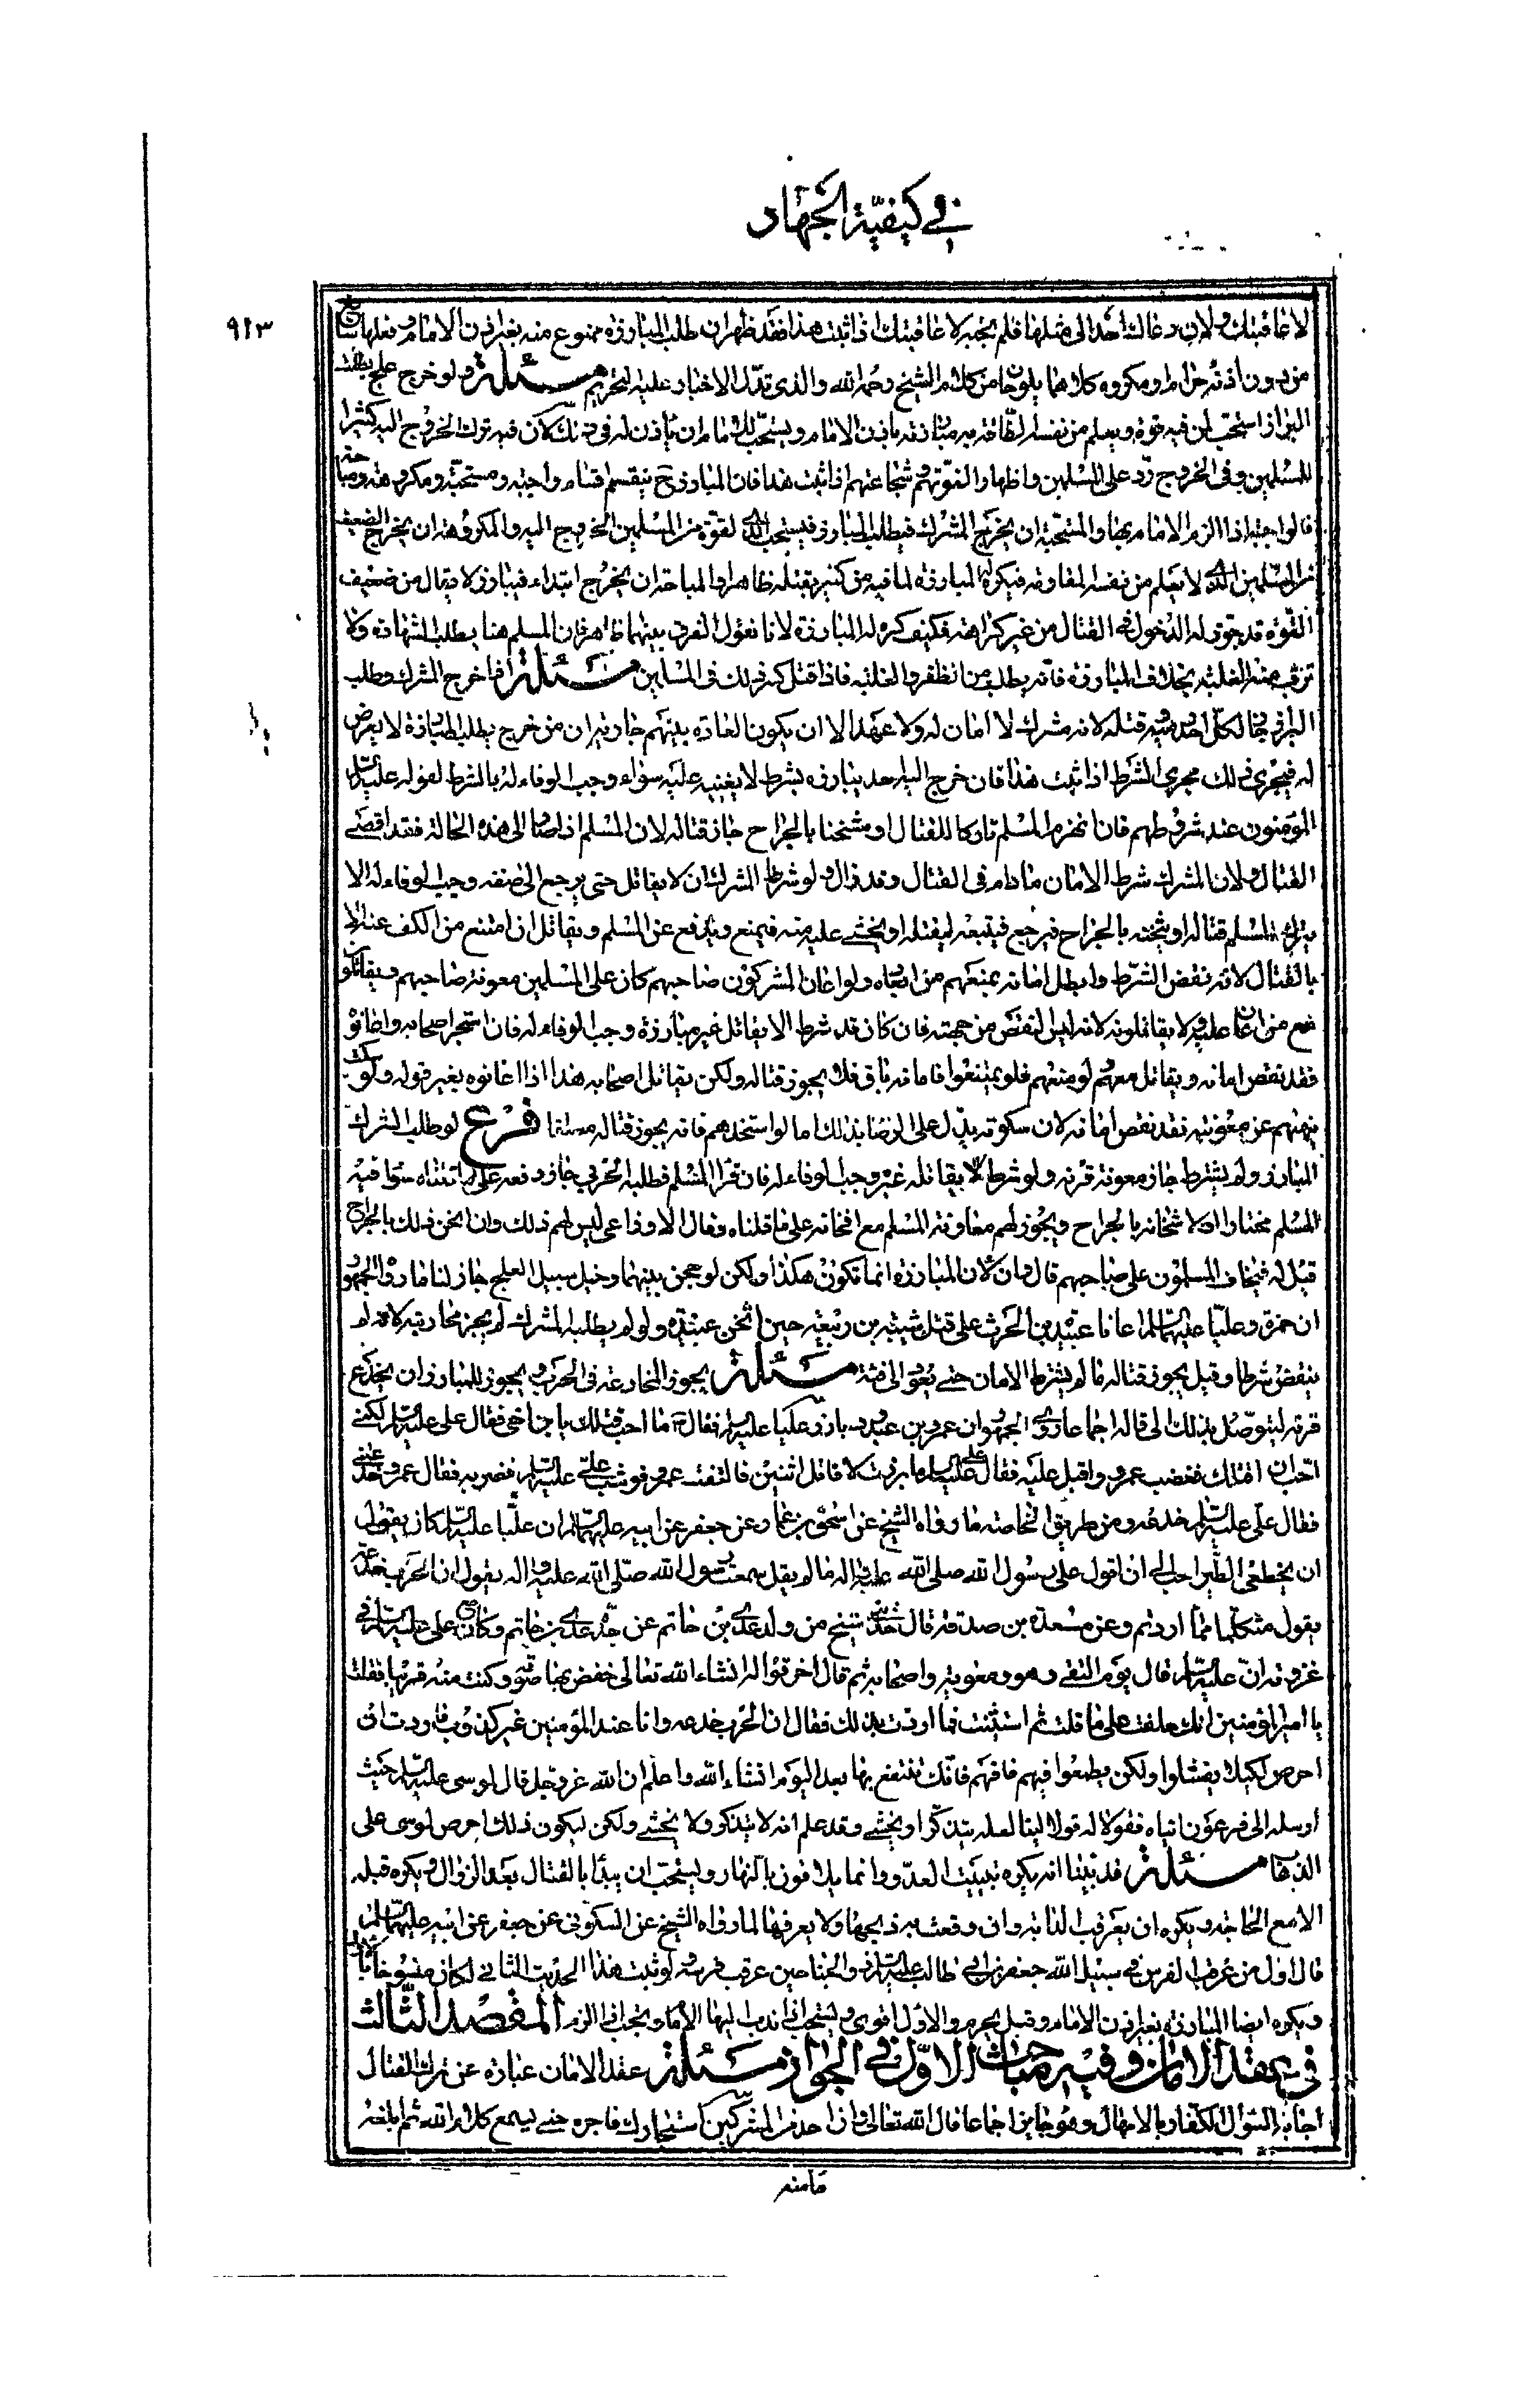 في كيفيّة الجهاد
٩١٣
لاعاقبتك ولان دعالك احد الى مثلها فلم تجبه لاعاقبتك اذا ثبت هذا فقد ظهر ان طلب المبارزة ممنوع منه بغير اذن الامام وفعلها
من دون اذنه حرام او مكروه كلاهما يلوحان من كلام الشيخ رحمه الله والذى تدلّ الاخبار عليه التحريم مسئلة ولو خرج علج يطلب
البراز استحبّ لمن فيه قوة ويعلم من نفسه الطاقة به مبارزته باذن الامام ويستحبّ للامام ان ياذن له في ذلك لان في ترك الخروج اليه كسرا
للمسلمين وفى الخروج ردّ على المسلمين واظهار القوّتهم وشجاعتهم اذا ثبت هذا فان المبارزة ح ينقسم اقساما واجبة ومستحبّة ومكروهة ومباحة
فالواجبة اذا الزم الامام بها والمستحبّة ان يخرج المشرك فيطلب المبارز فيستحب لذى القوّة من المسلمين الخروج اليه والمكروهة ان يخرج الضعيف
من المسلمين الذى لا يعلم من نفسه المقاومة فيكره له المبارزة لما فيه من كسر بقتله ظاهرا والمباحة ان يخرج ابتداء فيبارز لا يقال من ضعيف
القوّة قد جوّز له الدّخول في القتال من غير كراهة فكيف كره له المبارزة لانا نقول الفرق بينهما ظاهر فان المسلم هنا يطلب الشهادة ولا
ترقب منه الغلبة بخلاف المبارزة فانه يطلب منه الظفر والغلبة فاذا قتل كسر ذلك في المسلمين مسئلة اذا خرج المشرك وطلب
البراز جاز لكلّ احد رميه وقتله لانه مشرك لا امان له ولا عهد الا ان يكون العادة بينهم جارية ان من خرج يطلب المبارزة لا يعرض
له فيجرى ذلك مجرى الشرط اذا ثبت هذا فان خرج اليه احد يبارزه بشرط لا يعينه عليه سواه وجب الوفاء له بالشرط لقوله عليه السلام
المؤمنون عند شروطهم فان انهزم المسلم تاركا للقتال او مثخنا بالجراح جاز قتاله لان المسلم اذا صار الى هذه الحالة فقد انقضى
القتال ولان المشرك شرط الامان ما دام في القتال وقد زال ولو شرط المشرك ان لا يقاتل حتى يرجع الى صفه وجب الوفاء له الا
يترك المسلم قتاله او يثخنه بالجراح فيرجع فيتبعه ليقتله او يخشى عليه منه فيمنع ويدفع عن المسلم ويقاتل ان امتنع من الكف عنه الا
بالقتال لانه نقض الشرط وابطل امانه بمنعهم من انقاذه ولو اعان المشركون صاحبهم كان على المسلمين معونة صاحبهم ويقاتلون
مع من اعان عليه ولا يقاتلونه لانه ليس النقض من جهته فان كان قد شرط الا يقاتل غير مبارزه وجب الوفاء له فان استنجد اصحابه واعانوه
فقد نقض امانه ويقاتل معهم ولو منعهم فلم يمتنعوا فامانه باق فلا يجوز قتاله ولكن يقاتل اصحابه هذا اذا اعانوه بغير قوله ولو سكت
ينههم عن معونته فقد نقض امانه لان سكوته يدلّ على الرضا بذلك اما لو استنجدهم فانه يجوز قتاله مطلقا فرع لو طلب المشرك
المبارزة ولم يشترط جاز معونة قرنه ولو شرط الا يقاتله غيره وجب الوفاء له فان فرّ المسلم فطلبه الحربى جاز دفعه على ما قلناه سواء فرّ
المسلم مختارا او لاثخانه بالجراح ويجوز لهم معاونة المسلم مع اثخانه على ما قلناه وقال الاوزاعى ليس لهم ذلك وان اثخن ذلك بالجراح
قيل له فيخاف المسلمون على صاحبهم قال وان لان المبارزة انما تكون هكذا ولكن لو حجز بينهما وخلى سبيل العلج جاز لنا ما رواه الجمهور
ان حمزة وعليا عليهما السلام اعانا عبيدة بن الحرث على قتل شيبة بن ربيعة حين اثخن عبيدة ولو لم يطلب المشرك لم يجز محاربته لانه لم
ينقض شرطا وقيل يجوز قتاله ما لم يشترط الامان حتى يعود الى فئته مسئلة يجوز المخادعة في الحرب ويجوز للمبارز ان يخدع
قرنه ليتوصّل بذلك الى قتاله اجماعا روى الجمهور ان عمرو بن عبد ود بارز عليّا عليه السلام فقال ما احب قتلك يابن اخى فقال على عليه السلام لكنى
احبّ ان اقتلك فغضب عمرو واقبل عليه فقال على عليه السلام ما برزت لاقاتل اثنين فالتفت عمرو فوثب على عليه السلام فضربه فقال عمرو خدعتنى
فقال على عليه السلام الحرب خدعة ومن طريق الخاصة ما رواه الشيخ عن اسحق بن عمار عن جعفر عن ابيه عليهما السلام ان عليّا عليه السلام كان يقول
ان يخطفنى الطير احب الى ان اقول على رسول الله صلى الله عليه واله ما لم يقل سمعت رسول الله صلّى الله عليه واله يقول ان الحرب خدعة
يقول متكلما بما اردتم وعن مسعدة بن صدقة قال حدّثنى شيخ من ولد عدى بن حاتم عن جدّه عدى بن حاتم وكان مع على عليه السلام في
غزوته ان عليه السلام قال يوم التقى هو ومعوية واصحابه ثم قال اخر قوله انشاء الله تعالى خفض بها صوته وكنت منه قريبا فقلت
يا امير المؤمنين انك حلفت على ما قلت ثم استثنيت فما اردت بذلك فقال ان الحرب خدعه وانا عند المؤمنين غير كذوب فاردت ان
احرض لكيلا يفشلوا ولكن يطمعوا فيهم فافهم فانّك تنتفع بها بعد اليوم انشاء الله واعلم ان الله عز وجل قال لموسى عليه السلام حيث
ارسله الى فرعون ائتياه فقولا له قولا لينا لعله يتذكّر او يخشى وقد علم انه لا يتذكر ولا يخشى ولكن ليكون ذلك احرص لموسى على
الذهاب مسئلة قد بيّنا انه يكره تبييت العدو وانما يلاقون بالنهار ويستحبّ ان يبدأ بالقتال بعد الزوال ويكره قبله
الا مع الحاجة ويكره ان يعرقب الدابة وان وقعت به ذبحها ولا يعرقبها لما رواه الشيخ عن السكونى عن جعفر عن ابيه عليهما السلام
قال اول من عرقب الفرس في سبيل الله جعفر بن ابى طالب عليه السلام ذو الجناحين عرقب فرسه ولو ثبت هذا الحديث الثانى لكان منسوخا بالاول
ويكره ايضا المبارزة بغير اذن الامام وقيل يحرم والاول اقوى ويستحب اذا ندب اليها الامام ويجب اذا الزم المقصد الثّالث
في عقد الامان وفيه مباحث الاوّل في الجواز مسئلة عقد الامان عبارة عن ترك القتال
اجابة لسؤال الكفار بالامهال وهو جايز اجماعا قال الله تعالى وان احد من المشركين استجارك فاجره حتى يسمع كلام الله ثم ابلغه
مامنه